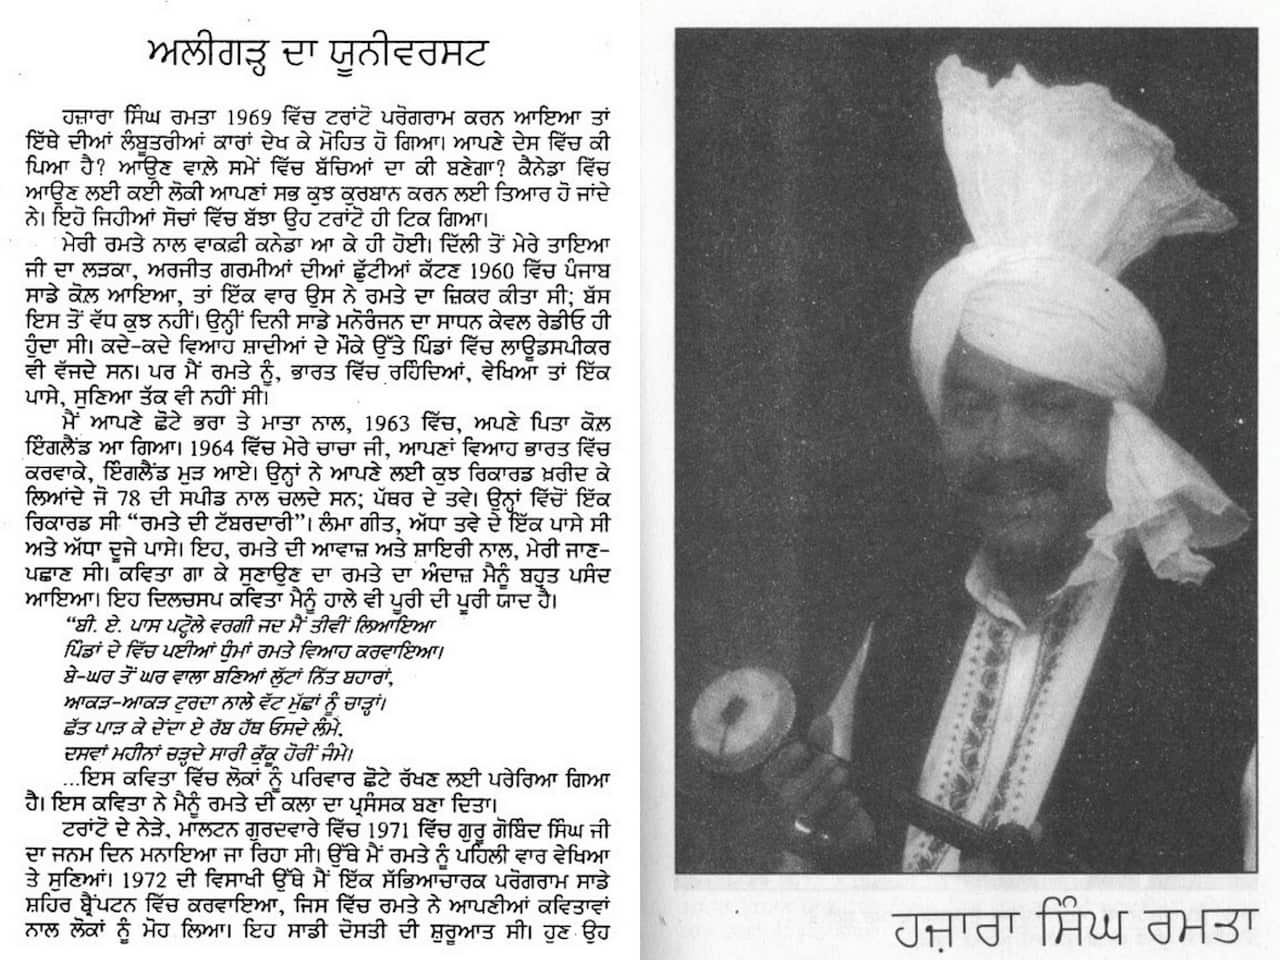 ਅਲੀਗੜ੍ਹ ਦਾ ਯੂਨੀਵਰਸਟ
ਹਜ਼ਾਰਾ ਸਿੰਘ ਰਮਤਾ 1969 ਵਿੱਚ ਟਰਾਂਟੋ ਪਰੋਗਰਾਮ ਕਰਨ ਆਇਆ ਤਾਂ
ਇੱਥੇ ਦੀਆਂ ਲੰਬੂਤਰੀਆਂ ਕਾਰਾਂ ਦੇਖ ਕੇ ਮੋਹਿਤ ਹੋ ਗਿਆ। ਆਪਣੇ ਦੇਸ ਵਿੱਚ ਕੀ
ਪਿਆ ਹੈ? ਆਉਣ ਵਾਲੇ ਸਮੇਂ ਵਿੱਚ ਬੱਚਿਆਂ ਦਾ ਕੀ ਬਣੇਗਾ? ਕੈਨੇਡਾ ਵਿੱਚ
ਆਉਣ ਲਈ ਕਈ ਲੋਕੀ ਆਪਣਾਂ ਸਭ ਕੁਝ ਕੁਰਬਾਨ ਕਰਨ ਲਈ ਤਿਆਰ ਹੋ ਜਾਂਦੇ
ਨੇ। ਇਹੋ ਜਿਹੀਆਂ ਸੋਚਾਂ ਵਿੱਚ ਬੱਝਾ ਉਹ ਟਰਾਂਟੋ ਹੀ ਟਿਕ ਗਿਆ।
ਮੇਰੀ ਰਮਤੇ ਨਾਲ ਵਾਕਫ਼ੀ ਕਨੇਡਾ ਆ ਕੇ ਹੀ ਹੋਈ। ਦਿੱਲੀ ਤੋਂ ਮੇਰੇ ਤਾਇਆ
ਜੀ ਦਾ ਲੜਕਾ, ਅਰਜੀਤ ਗਰਮੀਆਂ ਦੀਆਂ ਛੁੱਟੀਆਂ ਕੱਟਣ 1960 ਵਿੱਚ ਪੰਜਾਬ
ਸਾਡੇ ਕੋਲ਼ ਆਇਆ, ਤਾਂ ਇੱਕ ਵਾਰ ਉਸ ਨੇ ਰਮਤੇ ਦਾ ਜ਼ਿਕਰ ਕੀਤਾ ਸੀ; ਬੱਸ
ਇਸ ਤੋਂ ਵੱਧ ਕੁਝ ਨਹੀਂ। ਉਨ੍ਹੀਂ ਦਿਨੀ ਸਾਡੇ ਮਨੋਰੰਜਨ ਦਾ ਸਾਧਨ ਕੇਵਲ ਰੇਡੀਓ ਹੀ
ਹੁੰਦਾ ਸੀ। ਕਦੇ-ਕਦੇ ਵਿਆਹ ਸ਼ਾਦੀਆਂ ਦੇ ਮੌਕੇ ਉੱਤੇ ਪਿੰਡਾਂ ਵਿੱਚ ਲਾਊਡਸਪੀਕਰ
ਵੀ ਵੱਜਦੇ ਸਨ। ਪਰ ਮੈਂ ਰਮਤੇ ਨੂੰ, ਭਾਰਤ ਵਿੱਚ ਰਹਿੰਦਿਆਂ, ਵੇਖਿਆ ਤਾਂ ਇੱਕ
ਪਾਸੇ, ਸੁਣਿਆ ਤੱਕ ਵੀ ਨਹੀਂ ਸੀ।
ਮੈਂ ਆਪਣੇ ਛੋਟੇ ਭਰਾ ਤੇ ਮਾਤਾ ਨਾਲ, 1963 ਵਿੱਚ, ਅਪਣੇ ਪਿਤਾ ਕੋਲ਼
ਇੰਗਲੈਂਡ ਆ ਗਿਆ। 1964 ਵਿੱਚ ਮੇਰੇ ਚਾਚਾ ਜੀ, ਆਪਣਾਂ ਵਿਆਹ ਭਾਰਤ ਵਿੱਚ
ਕਰਵਾਕੇ, ਇੰਗਲੈਂਡ ਮੁੜ ਆਏ। ਉਨ੍ਹਾਂ ਨੇ ਆਪਣੇ ਲਈ ਕੁਝ ਰਿਕਾਰਡ ਖ਼ਰੀਦ ਕੇ
ਲਿਆਂਦੇ ਜੋ 78 ਦੀ ਸਪੀਡ ਨਾਲ ਚਲਦੇ ਸਨ; ਪੱਥਰ ਦੇ ਤਵੇ। ਉਨ੍ਹਾਂ ਵਿੱਚੋਂ ਇੱਕ
ਰਿਕਾਰਡ ਸੀ “ਰਮਤੇ ਦੀ ਟੱਬਰਦਾਰੀ”। ਲੰਮਾ ਗੀਤ, ਅੱਧਾ ਤਵੇ ਦੇ ਇੱਕ ਪਾਸੇ ਸੀ
ਅਤੇ ਅੱਧਾ ਦੂਜੇ ਪਾਸੇ। ਇਹ, ਰਮਤੇ ਦੀ ਆਵਾਜ਼ ਅਤੇ ਸ਼ਾਇਰੀ ਨਾਲ, ਮੇਰੀ ਜਾਣ-
ਪਛਾਣ ਸੀ। ਕਵਿਤਾ ਗਾ ਕੇ ਸੁਣਾਉਣ ਦਾ ਰਮਤੇ ਦਾ ਅੰਦਾਜ਼ ਮੈਨੂੰ ਬਹੁਤ ਪਸੰਦ
ਆਇਆ। ਇਹ ਦਿਲਚਸਪ ਕਵਿਤਾ ਮੈਨੂੰ ਹਾਲੇ ਵੀ ਪੂਰੀ ਦੀ ਪੂਰੀ ਯਾਦ ਹੈ।
“ਬੀ. ਏ. ਪਾਸ ਪਟ੍ਹੋਲੇ ਵਰਗੀ ਜਦ ਮੈਂ ਤੀਵੀਂ ਲਿਆਇਆ
ਪਿੰਡਾਂ ਦੇ ਵਿੱਚ ਪਈਆਂ ਧੁੰਮਾਂ ਰਮਤੇ ਵਿਆਹ ਕਰਵਾਇਆ।
ਬੇ-ਘਰ ਤੋਂ ਘਰ ਵਾਲਾ ਬਣਿਆਂ ਲੁੱਟਾਂ ਨਿੱਤ ਬਹਾਰਾਂ,
ਆਕੜ-ਆਕੜ ਟੁਰਦਾ ਨਾਲੇ ਵੱਟ ਮੁੱਛਾਂ ਨੂੰ ਚਾੜ੍ਹਾਂ।
ਛੱਤ ਪਾੜ ਕੇ ਦੇਂਦਾ ਏ ਰੱਬ ਹੱਥ ਓਸਦੇ ਲੰਮੇ,
ਦਸਵਾਂ ਮਹੀਨਾਂ ਚੜ੍ਹਦੇ ਸਾਰੀ ਕੁੱਕੂ ਹੋਰੀਂ ਜੰਮੇ।
...ਇਸ ਕਵਿਤਾ ਵਿੱਚ ਲੋਕਾਂ ਨੂੰ ਪਰਿਵਾਰ ਛੋਟੇ ਰੱਖਣ ਲਈ ਪਰੇਰਿਆ ਗਿਆ
ਹੈ। ਇਸ ਕਵਿਤਾ ਨੇ ਮੈਨੂੰ ਰਮਤੇ ਦੀ ਕਲਾ ਦਾ ਪ੍ਰਸੰਸਕ ਬਣਾ ਦਿਤਾ।
ਟਰਾਂਟੋ ਦੇ ਨੇੜੇ, ਮਾਲਟਨ ਗੁਰਦਵਾਰੇ ਵਿੱਚ 1971 ਵਿੱਚ ਗੁਰੂ ਗੋਬਿੰਦ ਸਿੰਘ ਜੀ
ਦਾ ਜਨਮ ਦਿਨ ਮਨਾਇਆ ਜਾ ਰਿਹਾ ਸੀ। ਉੱਥੇ ਮੈਂ ਰਮਤੇ ਨੂੰ ਪਹਿਲੀ ਵਾਰ ਵੇਖਿਆ
ਤੇ ਸੁਣਿਆਂ। 1972 ਦੀ ਵਿਸਾਖੀ ਉੱਥੇ ਮੈਂ ਇੱਕ ਸੱਭਿਆਚਾਰਕ ਪਰੋਗਰਾਮ ਸਾਡੇ
ਸ਼ਹਿਰ ਬ੍ਰੈਂਪਟਨ ਵਿੱਚ ਕਰਵਾਇਆ, ਜਿਸ ਵਿੱਚ ਰਮਤੇ ਨੇ ਆਪਣੀਆਂ ਕਵਿਤਾਵਾਂ
ਨਾਲ ਲੋਕਾਂ ਨੂੰ ਮੋਹ ਲਿਆ। ਇਹ ਸਾਡੀ ਦੋਸਤੀ ਦੀ ਸ਼ੁਰੂਆਤ ਸੀ। ਹੁਣ ਉਹ
ਹਜ਼ਾਰਾ ਸਿੰਘ ਰਮਤਾ